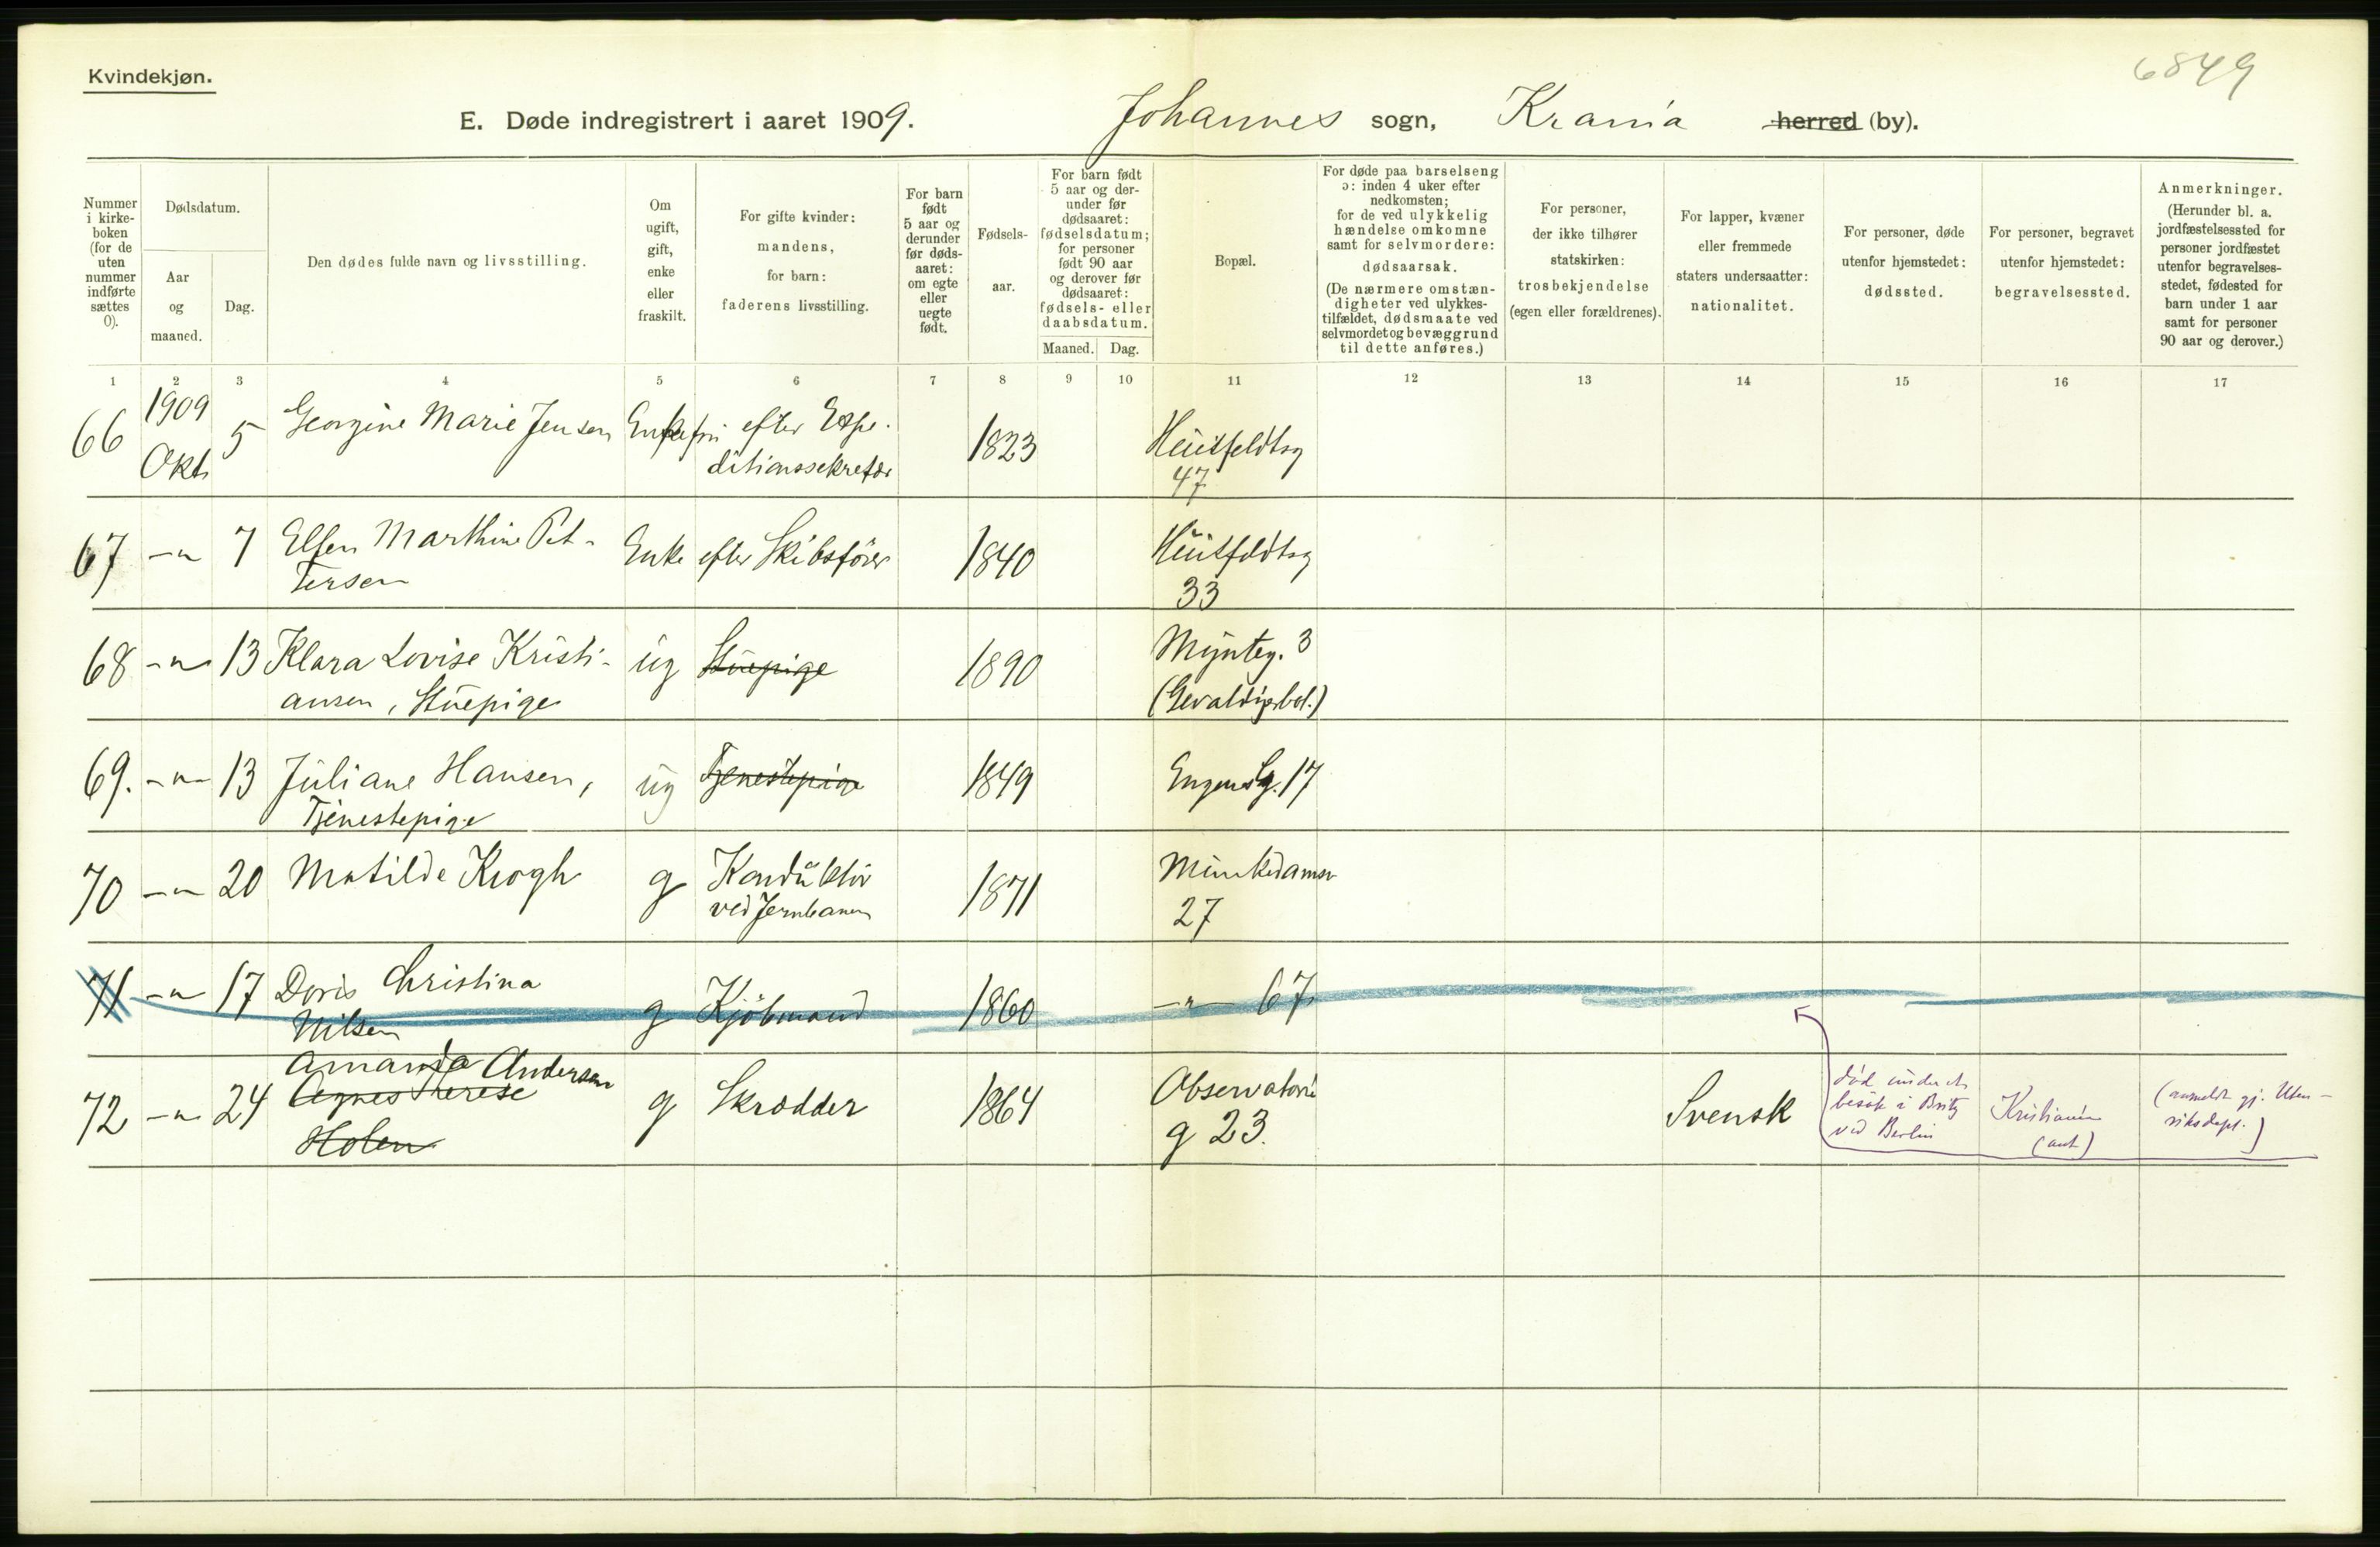 6849
Kvindekjøn.
E. Døde indregistrert i aaret 1909. Johannes sogn, Krania herred (by).
Nummer
i kirke-
boken
(for de
uten
nummer
indførte
sættes
0).
Dødsdatum.
Aar
og
maaned.
Dag.
Den dødes fulde navn og livsstilling.
Om
ugift,
gift,
enke
eller
fraskilt.
For gifte kvinder:
mandens,
for barn:
faderens livsstilling.
For barn
født
5 aar og
derunder
før døds-
aaret:
om egte
eller
uegte
født.
Fødsels-
aar.
For barn født
5 aar og der-
under før
dødsaaret:
fødselsdatum;
for personer
født 90 aar
og derover før
dødsaaret:
fødsels- eller
daabsdatum.
Maaned. Dag.
Bopæl.
For døde paa barselseng
ɔ: inden 4 uker efter
nedkomsten;
for de ved ulykkelig
hændelse omkomne
samt for selvmordere:
dødsaarsak.
(De nærmere omstæn-
digheter ved ulykkes-
tilfældet, dødsmaate ved
selvmordet og bevæggrund
til dette anføres.)
For personer,
der ikke tilhører
statskirken:
trosbekjendelse
(egen eller forældrenes).
For lapper, kvæner
eller fremmede
staters undersaatter:
nationalitet.
For personer, døde
utenfor hjemstedet:
dødssted.
For personer, begravet
utenfor hjemstedet:
begravelsessted.
Anmerkninger.
(Herunder bl. a.
jordfæstelsessted for
personer jordfæstet
utenfor begravelses-
stedet, fødested for
barn under 1 aar
samt for personer
90 aar og derover.)
1 2 3 4 5 6 7 8 9 10 11 12 13 14 15 16 17
66 1909 Okt 5 Georgine Marie Jensen Enkefru efter Expe-
ditionssekretær 1823 Huitfeldtsg
47
67 -"- 7 Ellen Marthine Pet-
tersen Enke efter Skibsfører 1840 Huitfeldtsg
33
68 -"- 13 Klara Lovise Kristi-
ansen, Stuepige ug Stuepige 1890 Myntg. 3
(Gevaldigerbol.)
69. -"- 13 Juliane Hansen,
Tjenestepige ug Tjenestepige 1849 Engensg. 17
70 -"- 20 Matilde Krogh g Konduktør
ved Jernbanen 1871 Munkedamsv
27
71 -"- 17 Doris Christina
Nilsen g Kjøbmand 1860 -"- 67
død under et
besøk i Britz
ved Berlin
Kristiania
(ant)
(anmeldt gj. Uten-
riksdept.)
72 -"- 24 Amanda Andersen
Agnes Therese
Holen g Skrædder 1864 Observatorie
g 23. Svensk